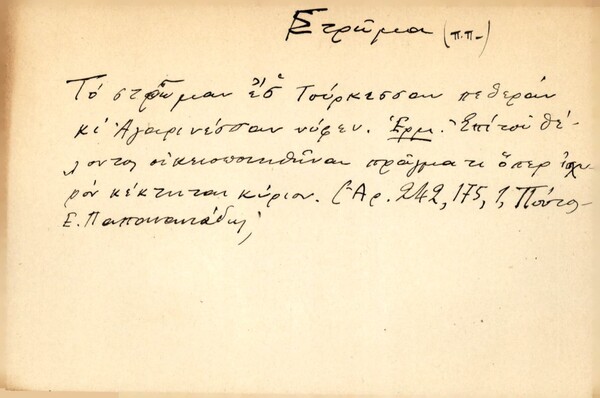 Στρῶμα (π.π-)
Τό στρῶμαν ἐσ̌ Τούρκεσσαν πεθεράν
κι Ἀγαρινέσσαν νύφεν. Ἑρμ. Ἐπί τοῦ θέ-
λοντος οἰκειοποιηθῆναι πρᾶγμα τι ὅπερ ἰσχυ-
ρόν κέκτηται κύριον. (Ἀρ. 242, 175, 1, Πόντος-
Ε. Παπανανιάδης)